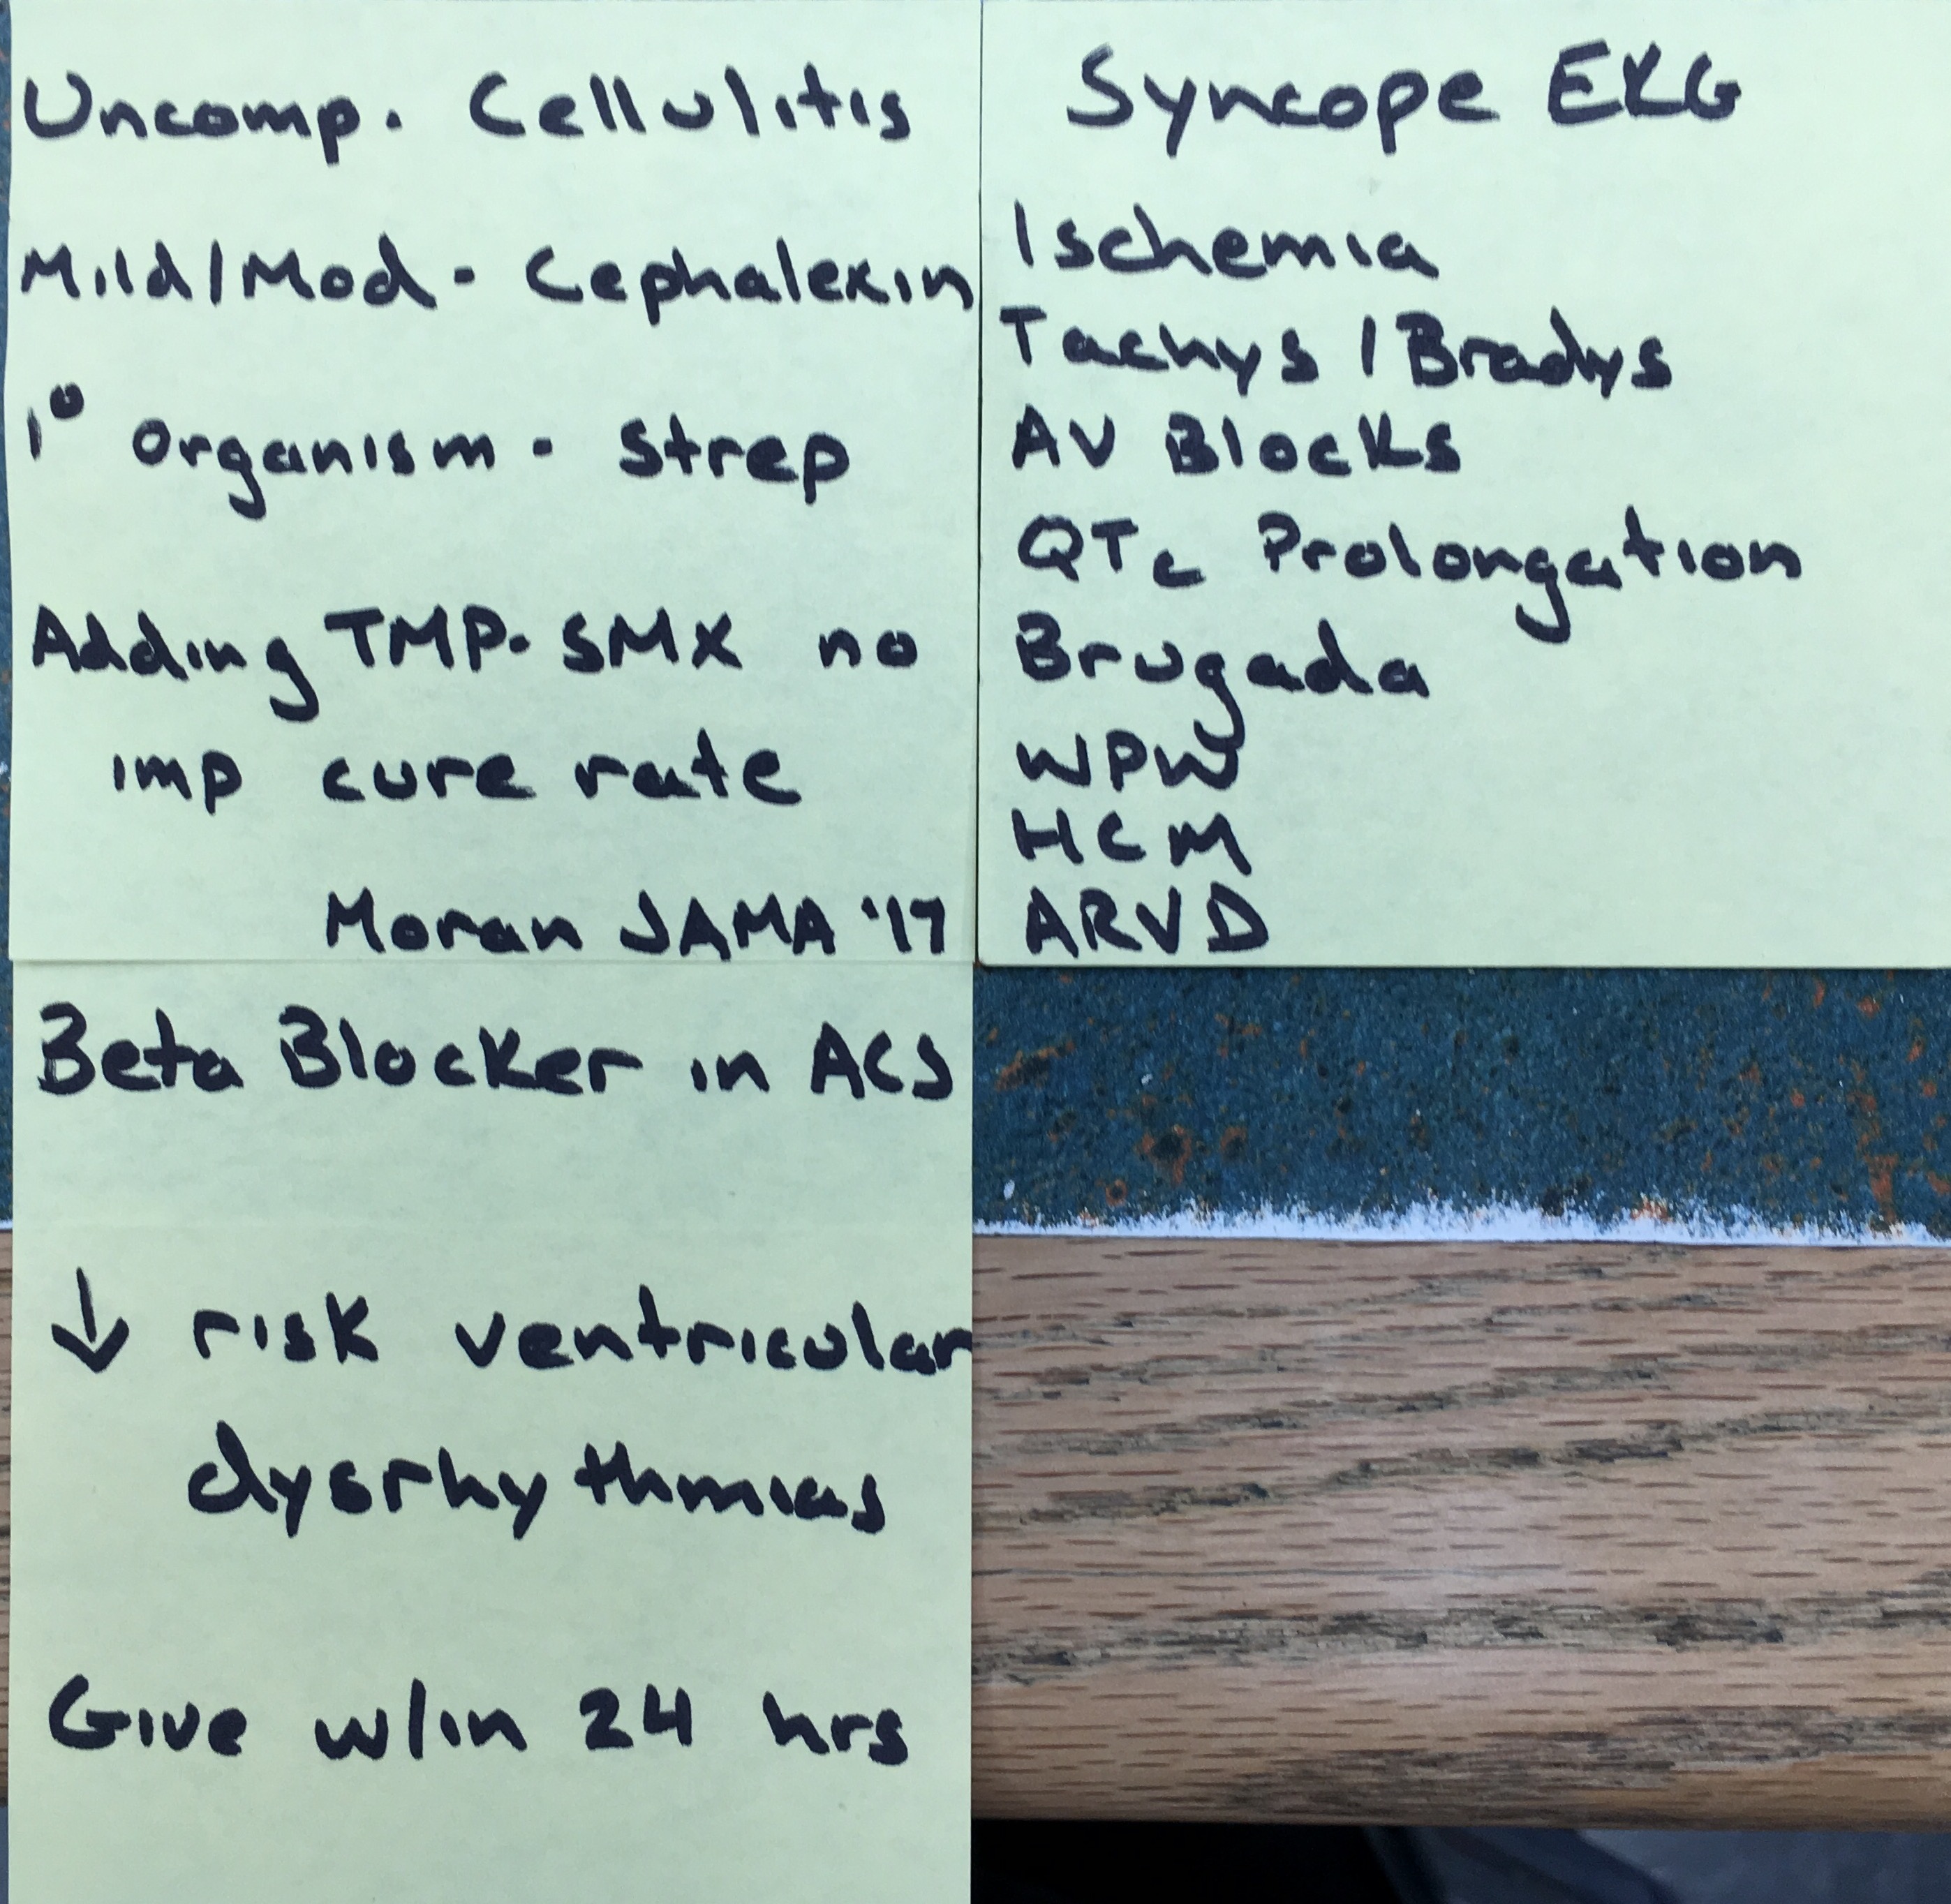 Uncomp. Cellulitis
Mild/Mod - Cephalexin
1° organism - Strep
Adding TMP-SMX no
imp cure rate
Moran JAMA '17
Syncope EKG
Ischemia
Tachys / Bradys
AV Blocks
QTc Prolongation
Brugada
WPW
HCM
ARVD
Beta Blocker in ACS
↓ risk ventricular
dysrhythmias
Give w/in 24 hrs